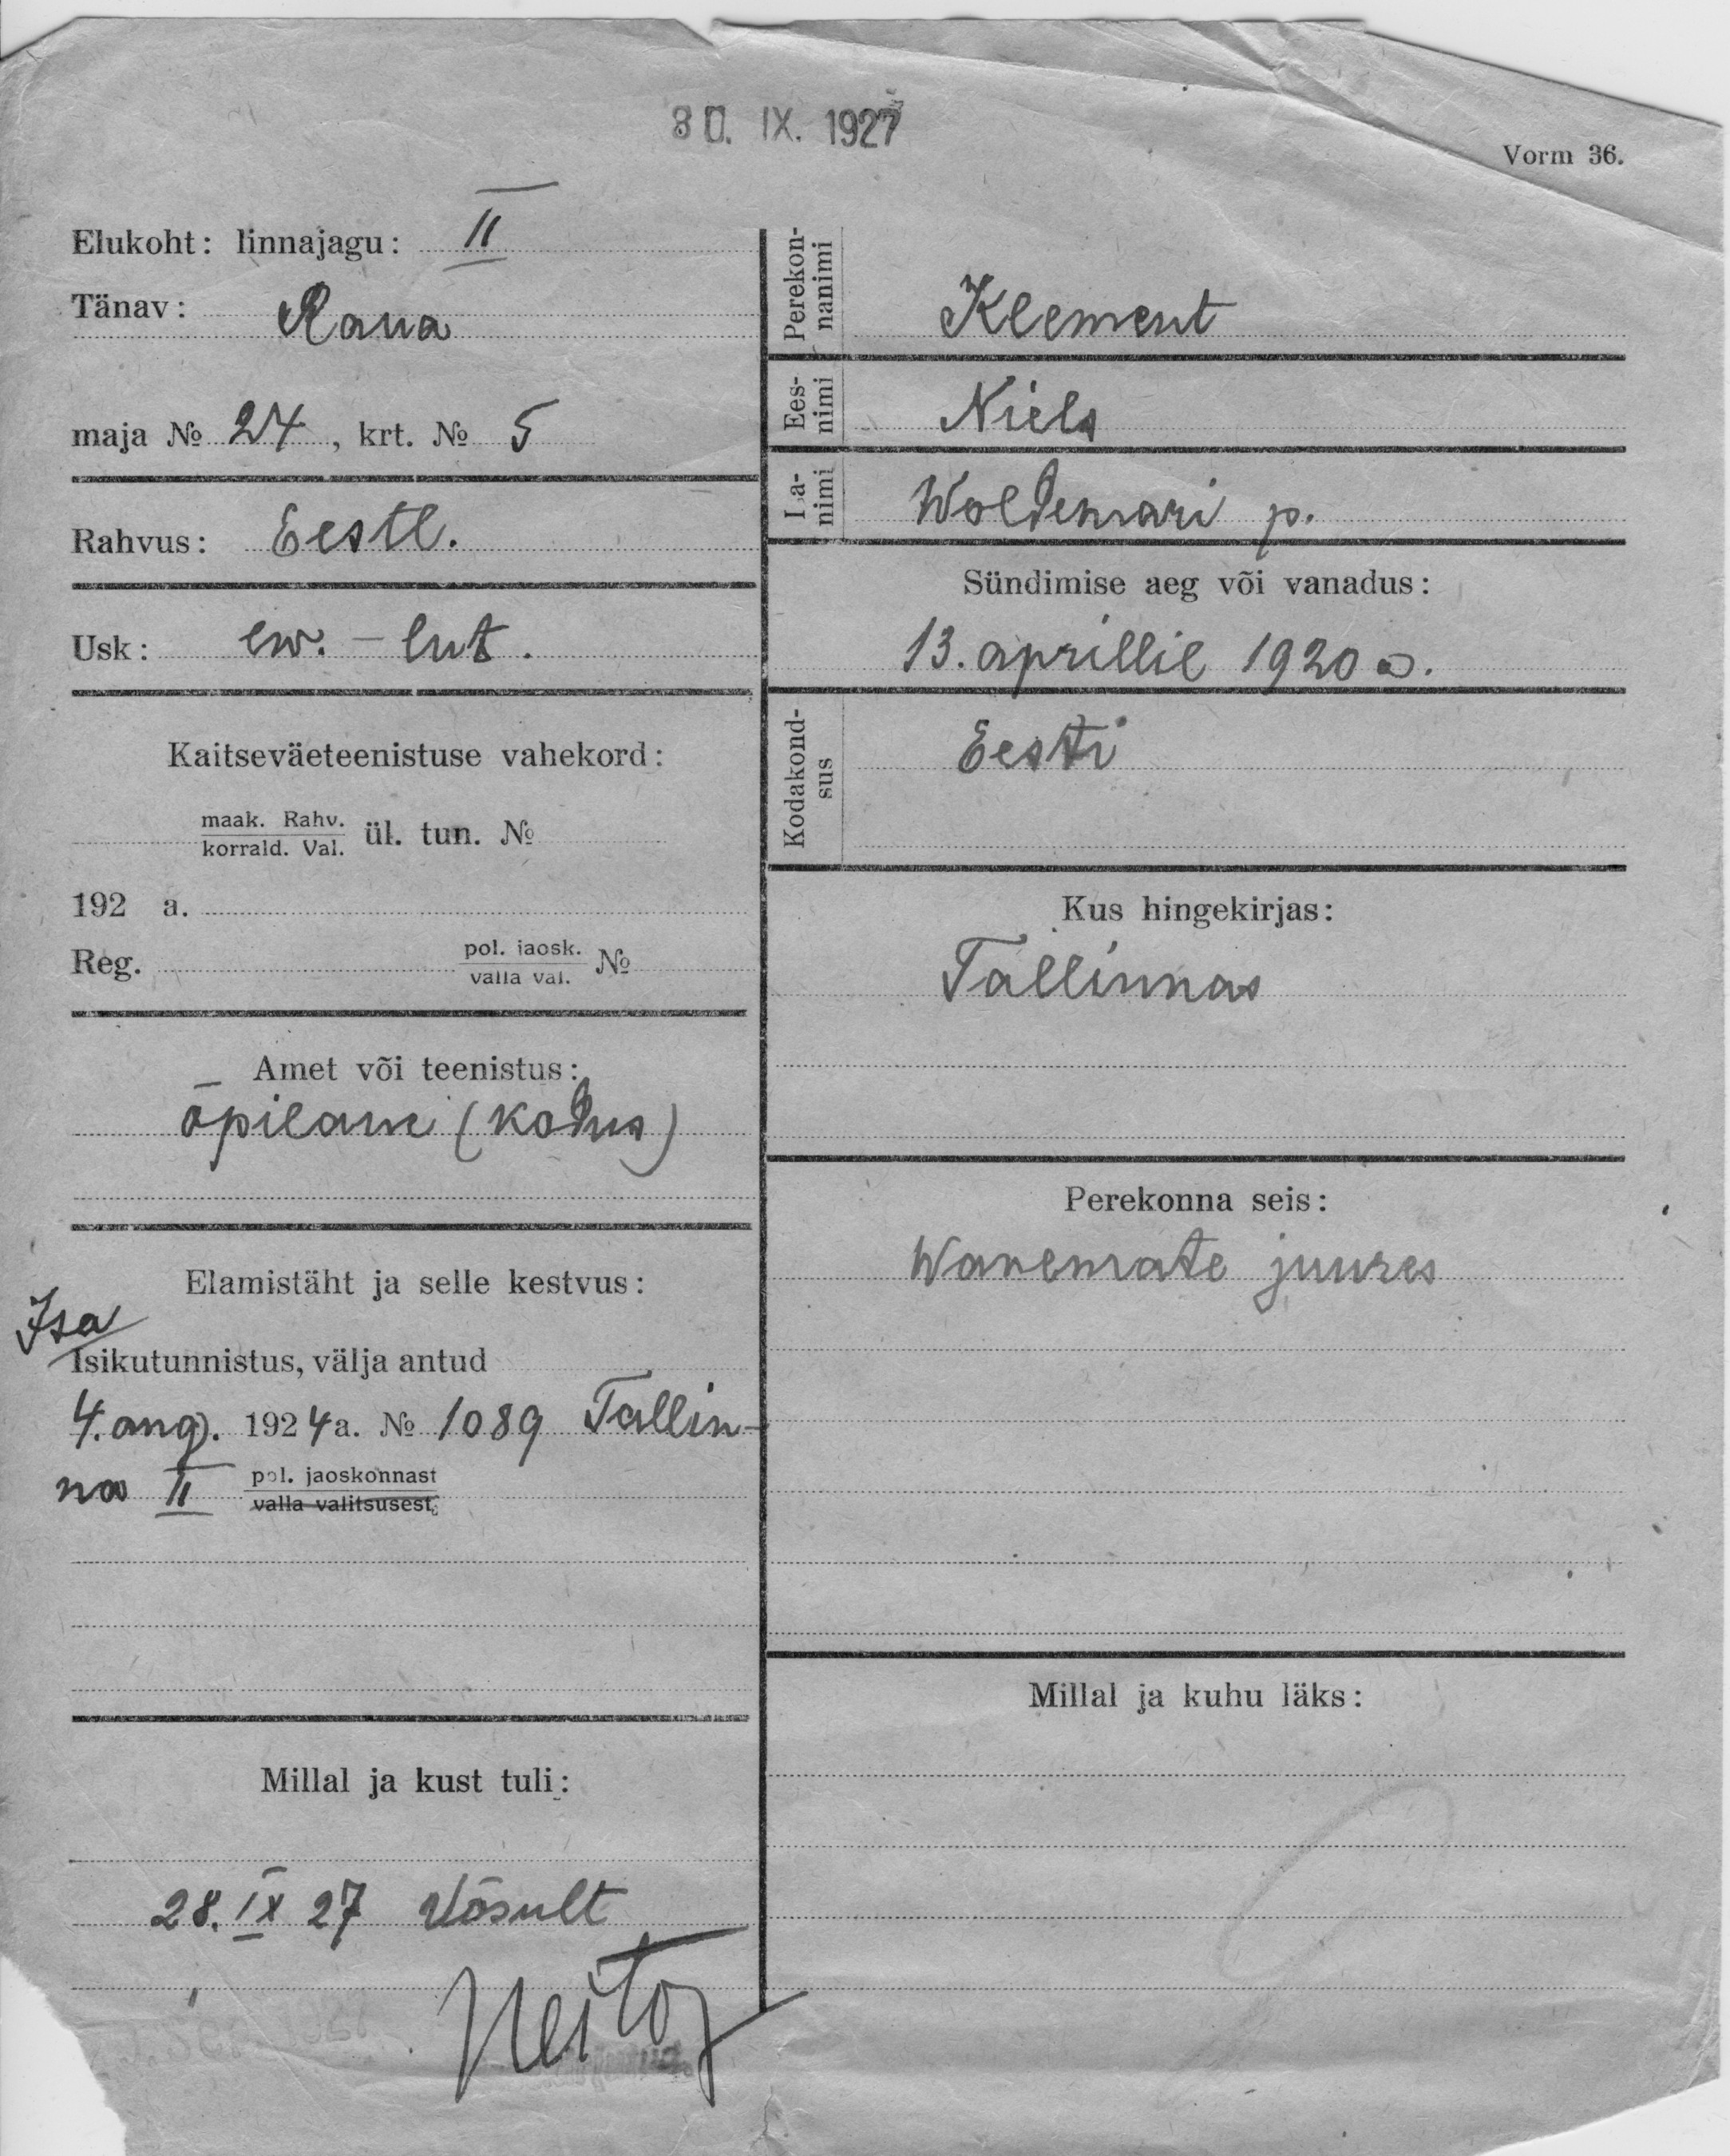 30. IX. 1927
Vorm 36.
Elukoht: linnajagu: II
Tänav: Raua
maja № 24, krt. № 5
Rahvus: Eestl.
Usk: ew. - lut.
Kaitseväeteenistuse vahekord:
maak. Rahv.
korrald. Val. ül. tun. №
192 a.
Reg. pol. jaosk.
valla val. №
Amet või teenistus:
õpilane (kodus)
Elamistäht ja selle kestvus:
Isa
Isikutunnistus, välja antud
4. aug. 1924 a. № 1089 Tallin-
na II pol. jaoskonnast
valla valitsusest,
Millal ja kust tuli:
28. IX 27 Võsult
Perekon-
nanimi
Klement
Ees-
nimi
Niels
Isa-
nimi
Woldemari p.
Sündimise aeg või vanadus:
13. aprillil 1920 a.
Kodakond-
sus
Eesti
Kus hingekirjas:
Tallinnas
Perekonna seis:
Wanemate juures
Millal ja kuhu läks: